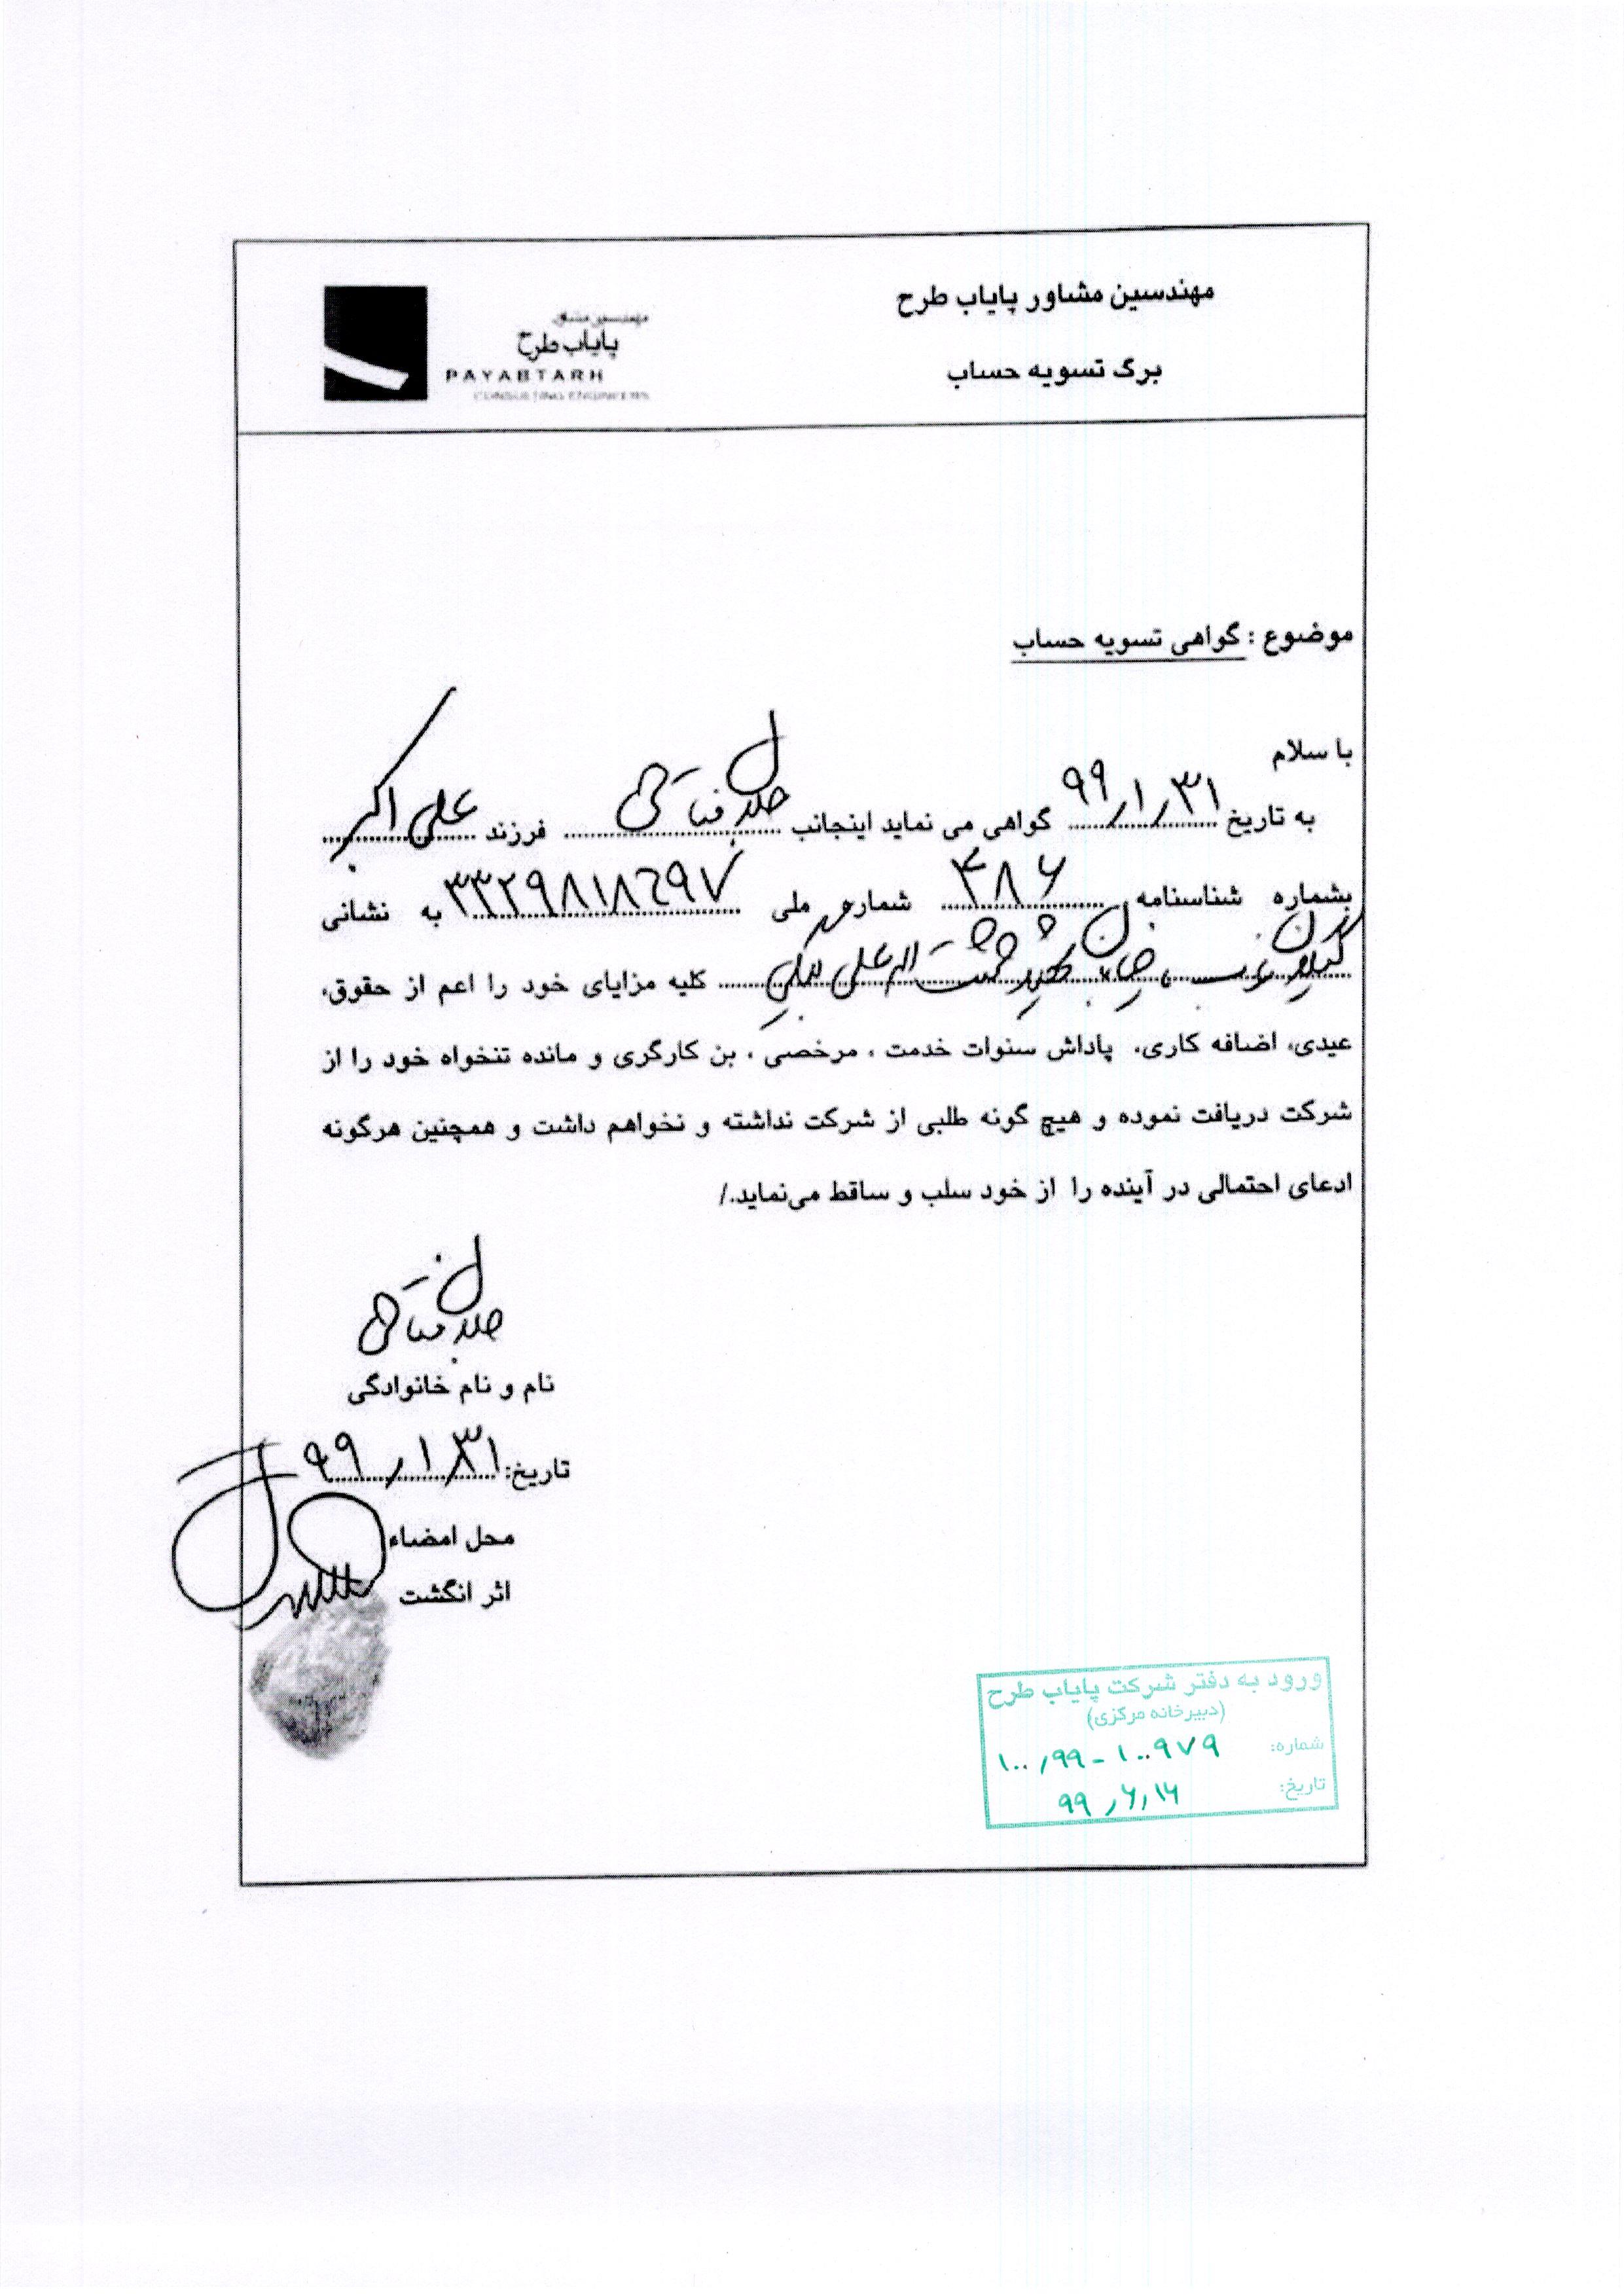 مهندسین مشاور پایاب طرح
برگ تسویه حساب
مهندسین مشاور
پایاب طرح
PAYABTARH
CONSULTING ENGINEERS
موضوع : گواهی تسویه حساب
با سلام
به تاریخ ۹۹/۱/۳۱ گواهی می نماید اینجانب جلال فتاحی فرزند علی اکبر
بشماره شناسنامه ۴۸۶ شماره ملی ۳۳۲۹۸۱۸۶۹۷ به نشانی
خیابان شهید حشمت اله علی کلیه مزایای خود را اعم از حقوق،
عیدی، اضافه کاری، پاداش سنوات خدمت ، مرخصی ، بن کارگری و مانده تنخواه خود را از
شرکت دریافت نموده و هیچ گونه طلبی از شرکت نداشته و نخواهم داشت و همچنین هرگونه
ادعای احتمالی در آینده را از خود سلب و ساقط می‌نماید./
جلال فتاحی
نام و نام خانوادگی
تاریخ: ۹۹/۱/۳۱
محل امضاء
اثر انگشت
ورود به دفتر شرکت پایاب طرح
(دبیرخانه مرکزی)
شماره: ۱۰۰/۹۹-۱۰۰۹۷۹
تاریخ: ۹۹/۶/۱۶